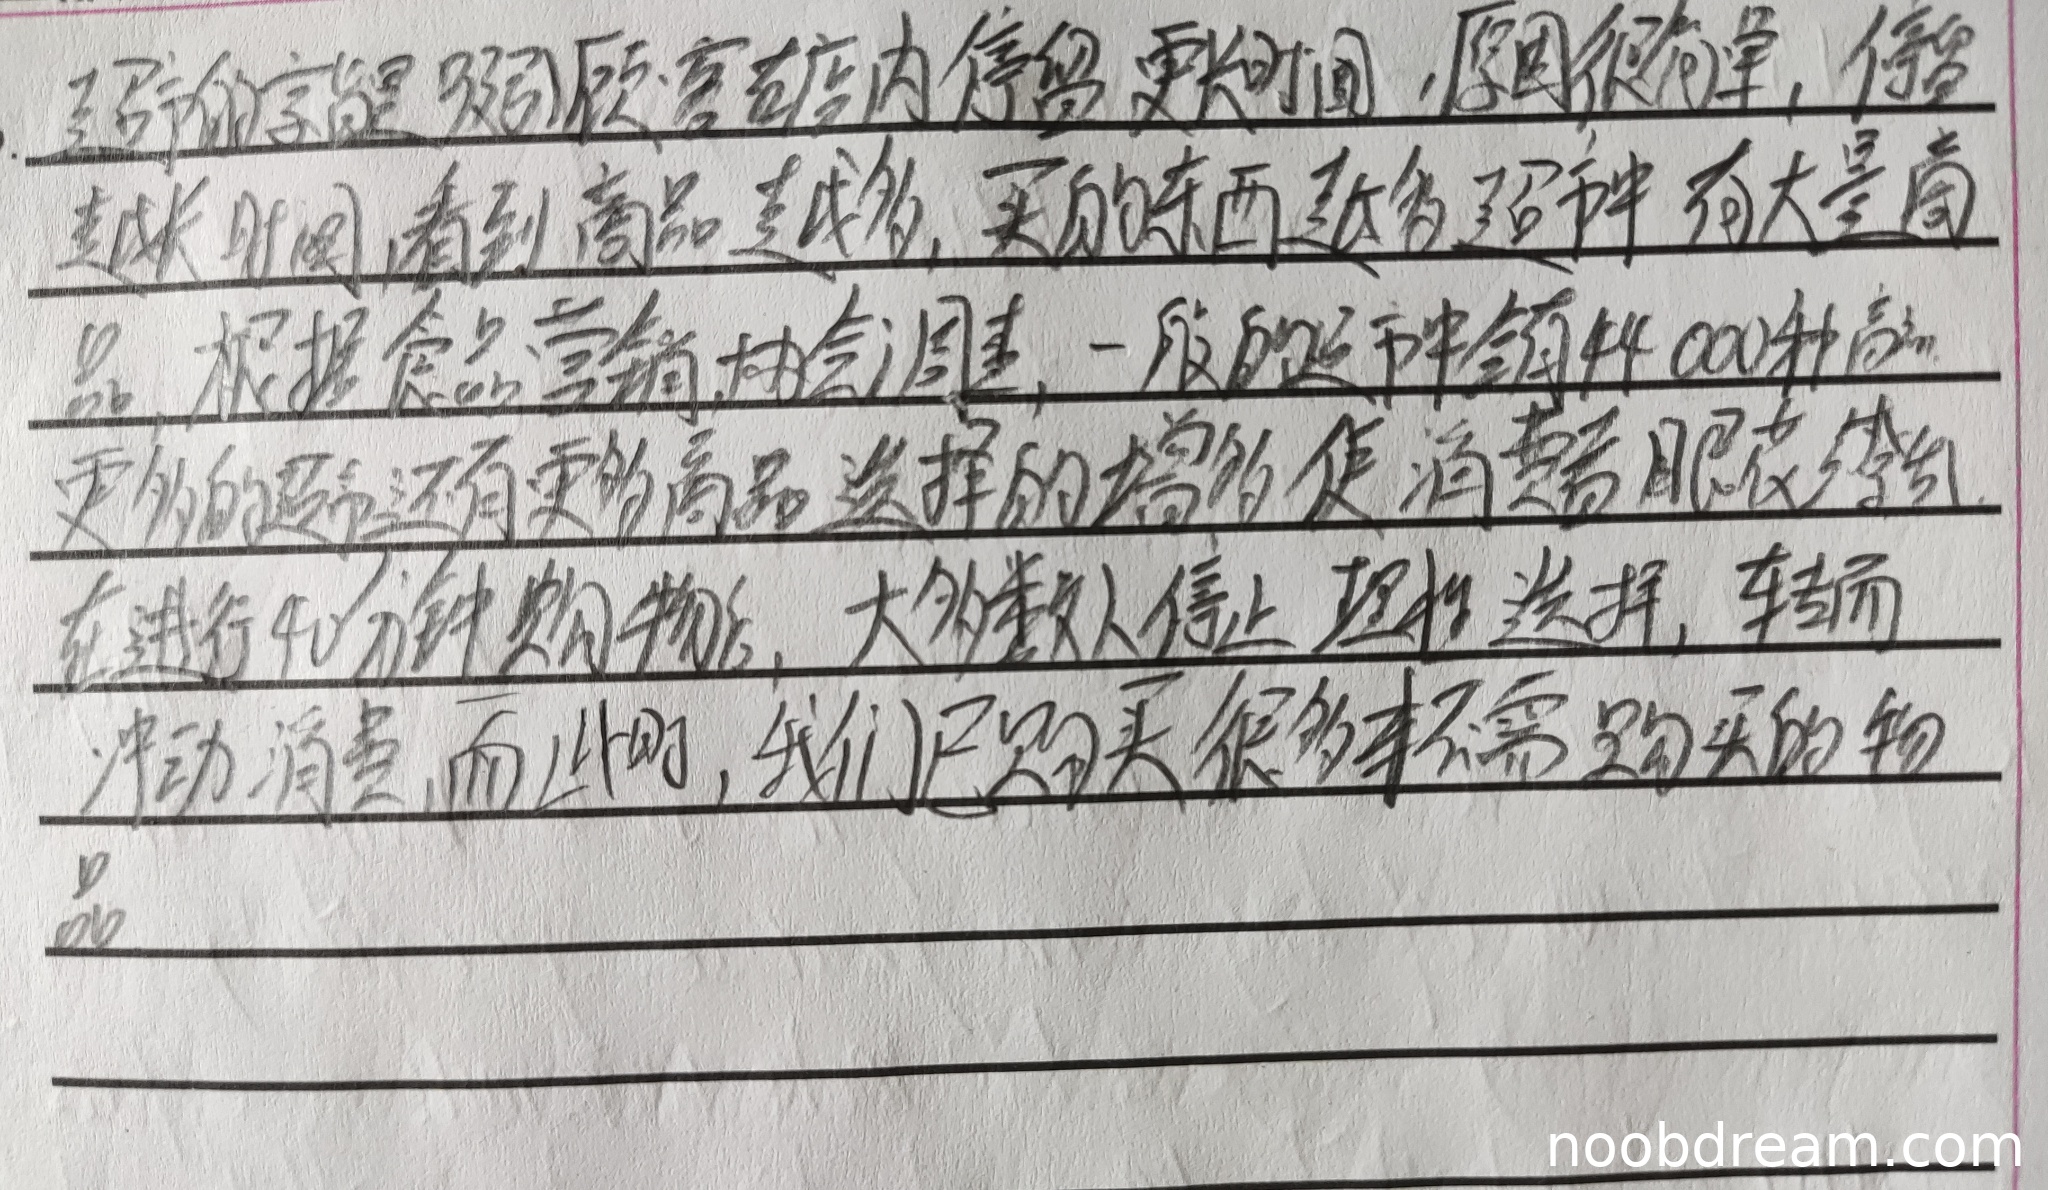 超市的宗旨是吸引顾客在店内停留更长时间，原因很简单，停留
越长时间，看到商品越多，买的东西越多超市中有大量商
品，根据食品营销协会调查，一般的超市中含有44000种商品
更多的超市还有更多商品选择的增多使消费者眼花缭乱
在进行40分钟购物后，大多数人停止理性选择，转而
冲动消费，而此时，我们已购买很多本不需购买的物
品
noobdream.com